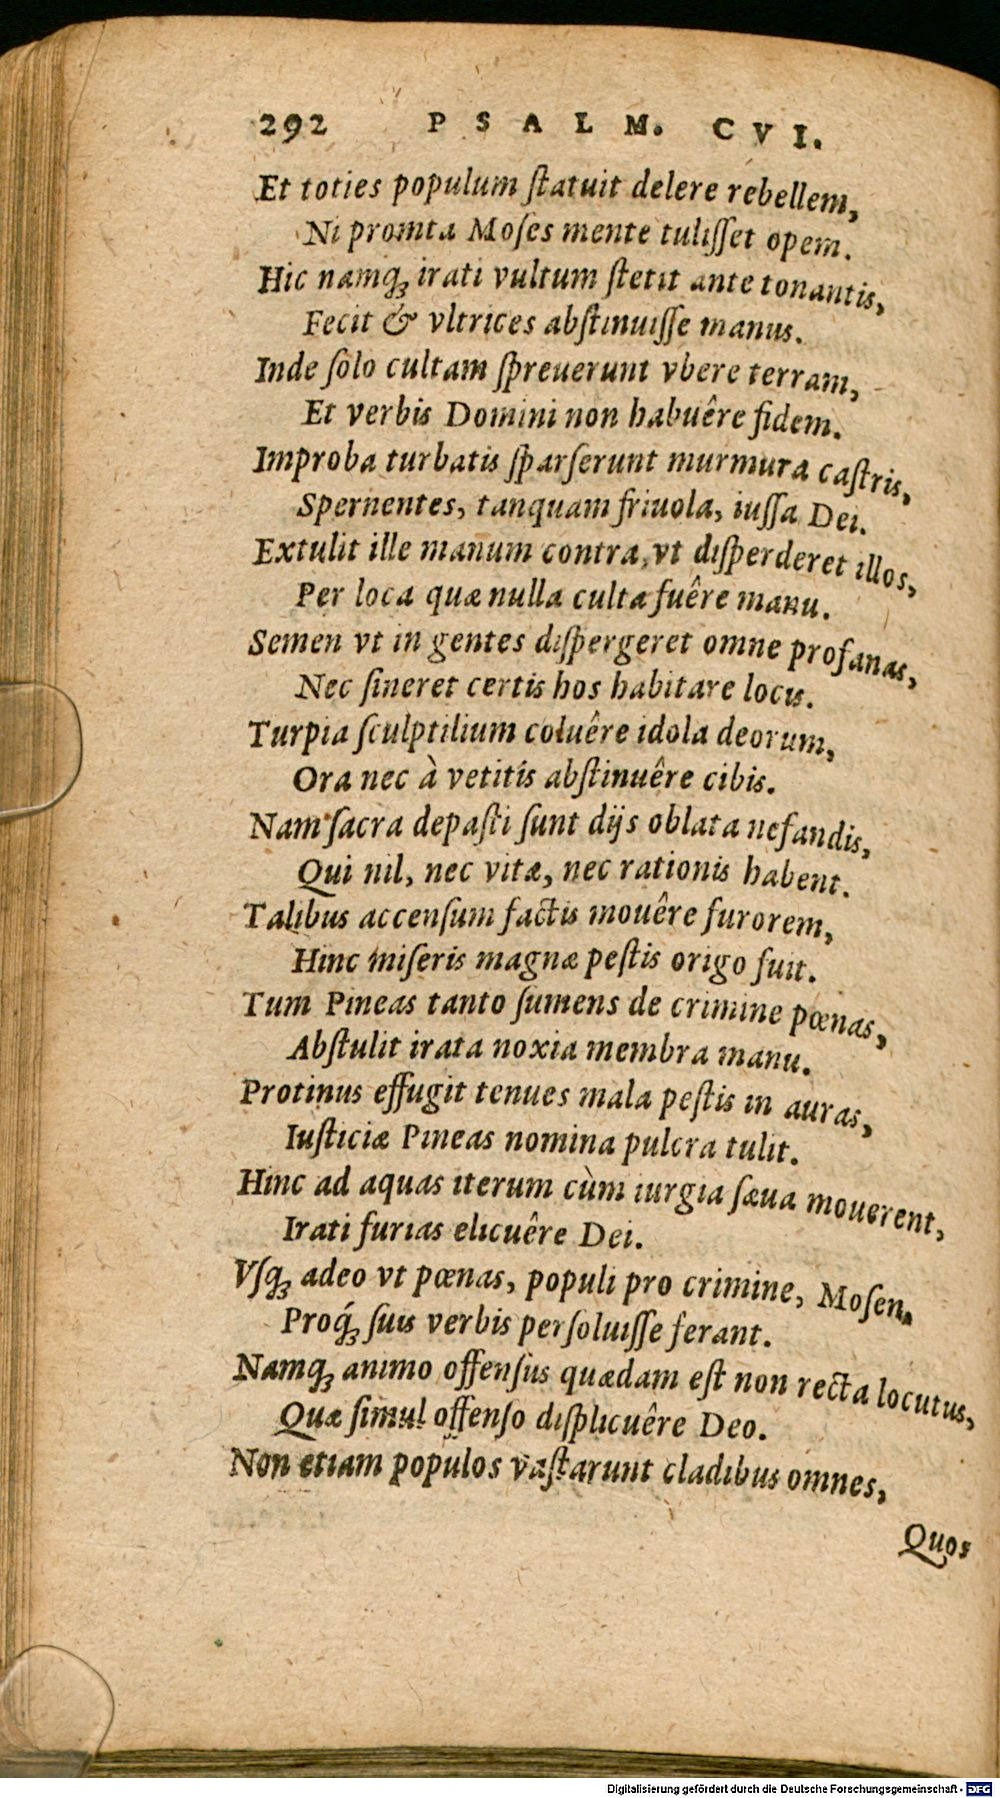 292 PSALM. CVI.
Et toties populum ſtatuit delere rebellem,
Ni promta Moſes mente tuliſſet opem.
Hic namq́ꝫ irati vultum ſtetit ante tonantis,
Fecit & vltrices abſtinuiſſe manus.
Inde ſolo cultam ſpreuerunt vbere terram,
Et verbis Domini non habuêre fidem.
Improba turbatis ſparſerunt murmura caſtris,
Spernentes, tanquam friuola, iuſſa Dei.
Extulit ille manum contra, vt diſperderet illos,
Per loca quæ nulla culta fuêre manu.
Semen vt in gentes diſpergeret omne profanas,
Nec ſineret certis hos habitare locis.
Turpia ſculptilium coluêre idola deorum,
Ora nec à vetitis abſtinuêre cibis.
Nam ſacra depaſti ſunt dijs oblata nefandis,
Qui nil, nec vitæ, nec rationis habent.
Talibus accenſum factis mouêre furorem,
Hinc miſeris magnæ peſtis origo fuit.
Tum Pineas tanto ſumens de crimine pœnas,
Abſtulit irata noxia membra manu.
Protinus effugit tenues mala peſtis in auras,
Iuſticiæ Pineas nomina pulcra tulit.
Hinc ad aquas iterum cùm iurgia ſæua mouerent,
Irati furias elicuêre Dei.
Vſqꝫ adeo vt pœnas, populi pro crimine, Moſen,
Proq́ꝫ ſuis verbis perſoluiſſe ferant.
Namqꝫ animo offenſus quædam eſt non recta locutus,
Quæ ſimul offenſo diſplicuêre Deo.
Non etiam populos vaſtarunt cladibus omnes,
Quos
Digitalisierung gefördert durch die Deutsche Forschungsgemeinschaft - DFG